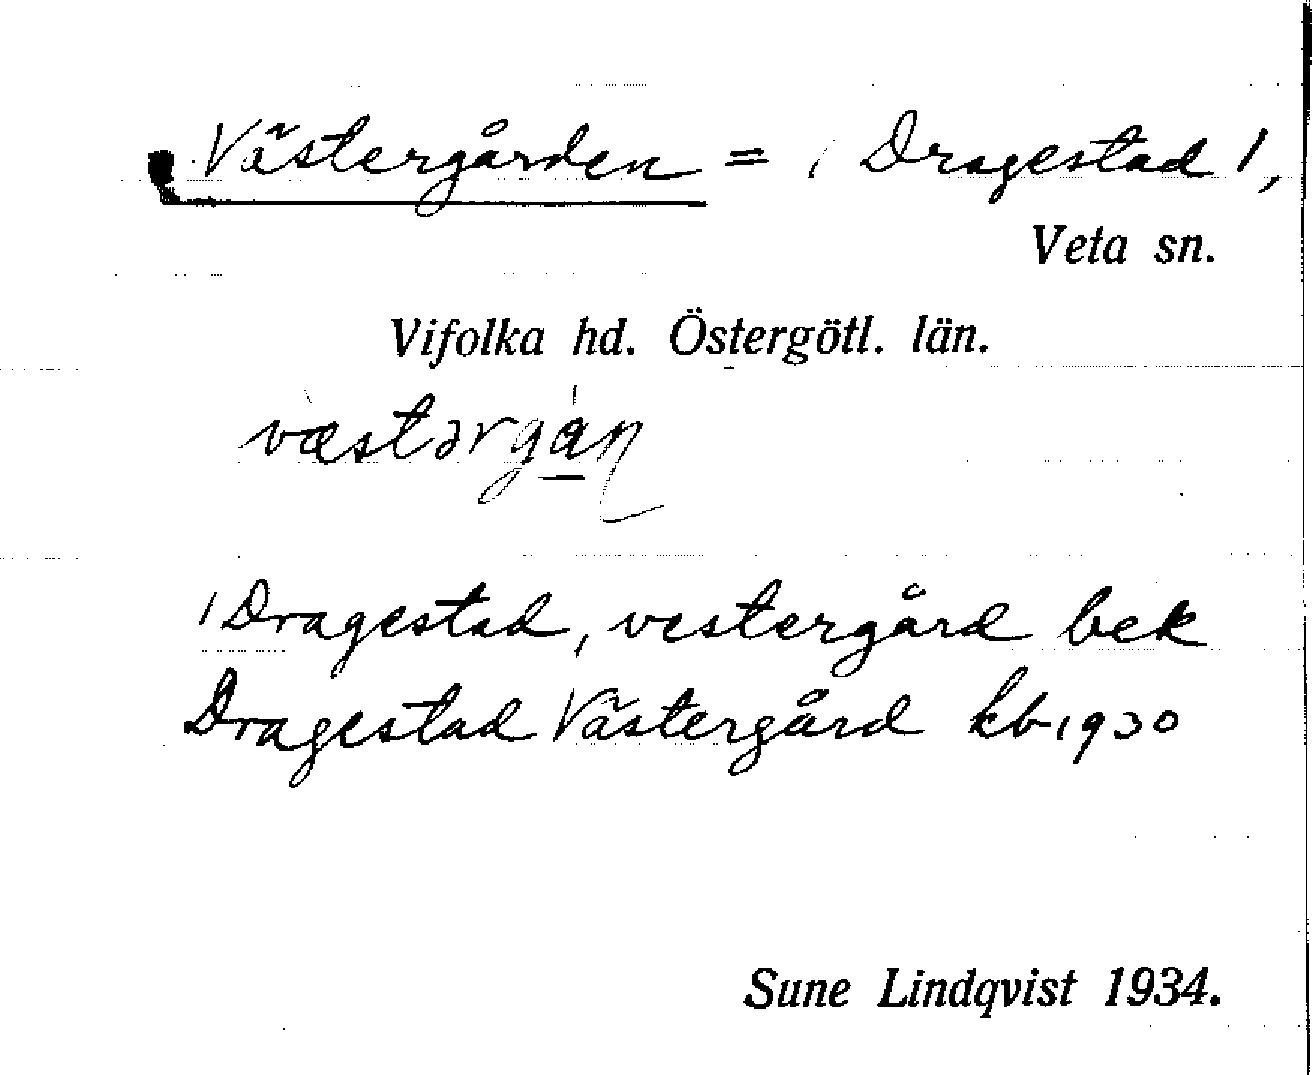 Västergården = / Dragestad /,
Veta sn.
Vifolka hd. Östergötl. län.
væstərgån
/ Dragestad, vestergård bek
Dragestad Västergård kb 1930
Sune Lindqvist 1934.